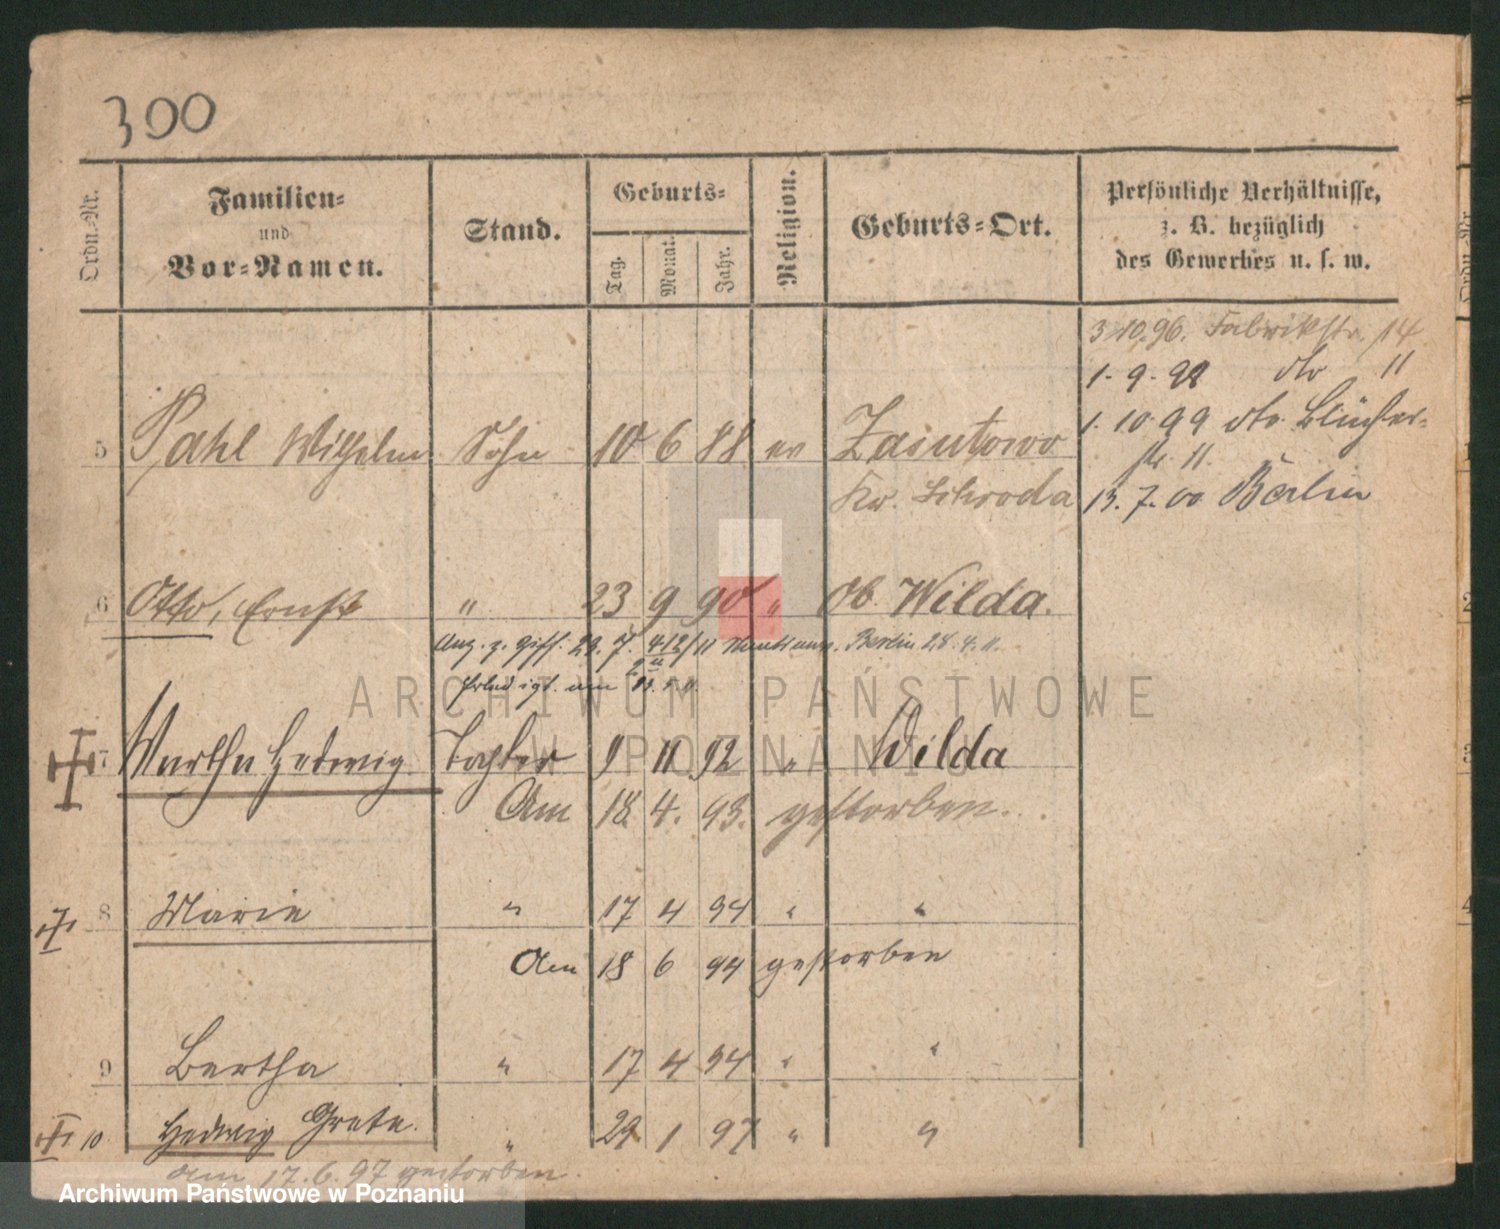 300
Ordn.-Nr.
Familien- und Vor-Namen.
Stand.
Geburts-
Tag.
Monat.
Jahr.
Religion.
Geburts-Ort.
Persönliche Verhältnisse, z. B. bezüglich des Gewerbes u. s. w.
3.10.96. Fabrikstr. 14
1. 9. 98 dto 11
1. 10. 99 dto. Blücher-
str 11.
5 Pahl Wilhelm Sohn 10 6 88 ev Zasutowo
Kr. Schroda
13. 7. 00 Berlin
6 Otto, Ernst " 23 9 90 " Ob. Wilda.
29. 7. 412/11 Berlin 28. 4. 11.
Erledigt. am
ARCHIWUM PAŃSTWOWE
W POZNANIU
7 Martha Hedwig Tochter 9 11 92 " Wilda
Am 18. 4. 93. gestorben.
8 Marie " 17 4 94 " "
Am 18 6 94 gestorben
9 Bertha " 17 4 94 " "
10 Hedwig Grete. " 29 1 97 " "
am 17. 6. 97 gestorben.
Archiwum Państwowe w Poznaniu